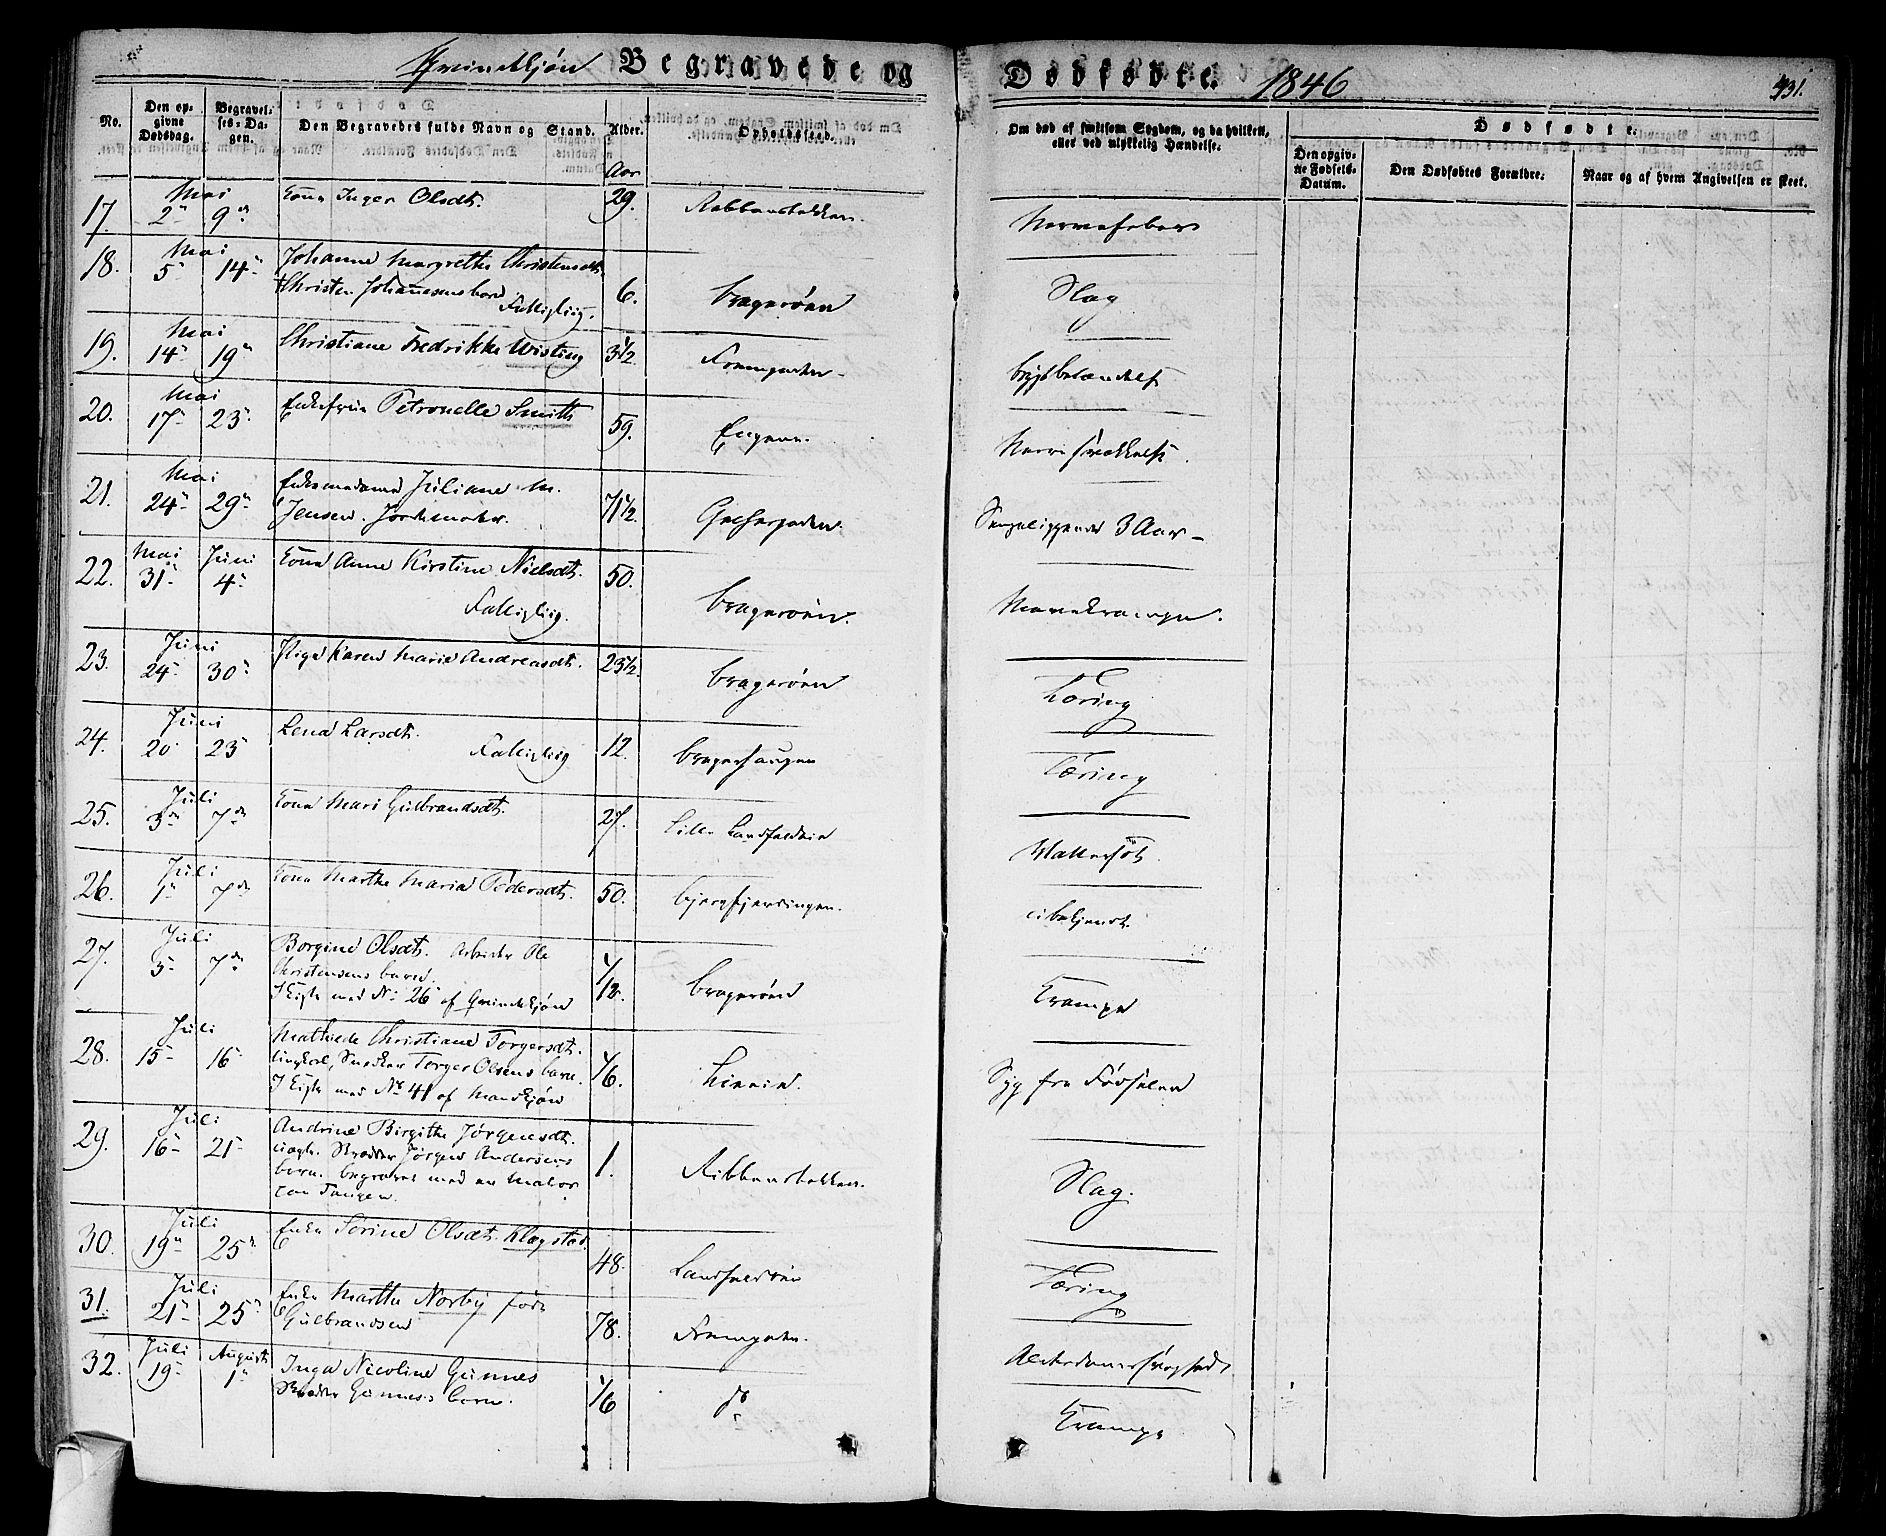 Qvindekjön Begravede og Dødfødte. 1846 431.
No. Den opgivne Dødsdag. Begravelses-Dagen. Den Begravedes fulde Navn og Stand. Alder. Opholdssted. Om død af smitsom Sygdom, og da hvilken, eller ved ulykkelig Hændelse. Dødfødte.
Den opgivne Fødsels-Datum. Den Dødfødtes Forældre. Naar og af hvem Angivelsen er skeet.
Aar
17. Mai 2 9de Kona Inger Olsdt. 29. Nervefeber
18. Mai 5 14 Johanne Margrethe Christensdt.
Christen Johannesens barn
Fattiglig. 6. Bragerøen Slag
19. Mai 14 19 Christiane Fredrikke Wisting 3½ Strømgaden Brystbetændelse
20. Mai 17 23 Enkefrue Petronelle Smith 59. Engene. Nervesvækkelse.
21. Mai 24 29 Enkemadame Juliane M.
Jensen. Jordemoder. 71½. Sengeliggende 3 Aar
22. Mai 31 Juni 4 Kona Anne Kirstine Nielsdt.
Fattiglig. 50. Bragerøen. Nervekrampe.
23. Juni 24 30 Pige Karen Marie Andreasdt. 23½. Bragerøen Tæring
24. Juni 20 23 Lena Larsdt.
Fattiglig 12. Bragerhaugen Tæring
25. Juli 3de 7de Kona Mari Gulbrandsdt. 27. Lille Landfaldøen Vattersot.
26. Juli 1 7de Kona Marthe Maria Pedersdt. 50. Bjergfjerdingen. ei bekjendt.
27. Juli 5 7de Borgine Olsdt. Arbeider Ole
Christensens barn.
I Kiste med No 26 af Qvindekjön ½. Bragerøen Krampe
28. Juli 15 16 Mathilde Christiane Torgersdt.
Snedker Torger Olsens barn.
I Kiste med No 41 af Mandkjön 1/6. Syg fra Fødselen
29. Juli 16 21 Andrine Birgithe Jørgensdt.
uægte. Skrædder Jørgen Andersens
barn. begravet med en Mator
fra Tangen. 1. Ribbenstokken. Slag.
30. Juli 19 25 Enke Sørine Olsdt. Klogstad. 48. Landfaldøen Tæring
31. Juli 21 25 Enke Marthe Norby født
Gulbrandsen 78. Strømgaden. Alderdomssvaghed
32. Juli 19 August 1 Inga Nicoline Gunnes
Skrædder Gunnes's barn. 1/6 do Krampe